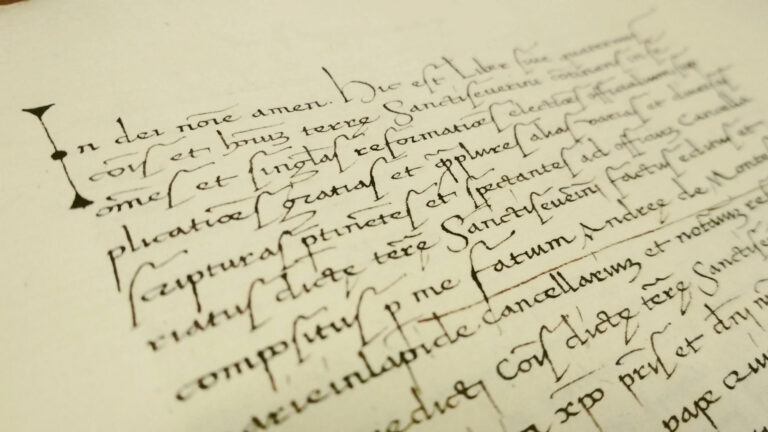 In dei nōīe amen. Hic est Liber sive quaternus
cōis et hoīuȝ terrę Sanctiseverini cōtinens in se
oēs et singłas reformatiōes electiōes officialium sup
plicatiōes gratias et q̄plures alias varias et diversas
scripturas ptinētes et spectantes ad officiuȝ Cancella
riatus dictę tērę Sanctiseverini factus editus et
compositus p me fatium Andreę de Monte
arie in lapide cancellariuȝ et notariuȝ
dicti Cōis dictę tērę
xpo pris et dni
pape